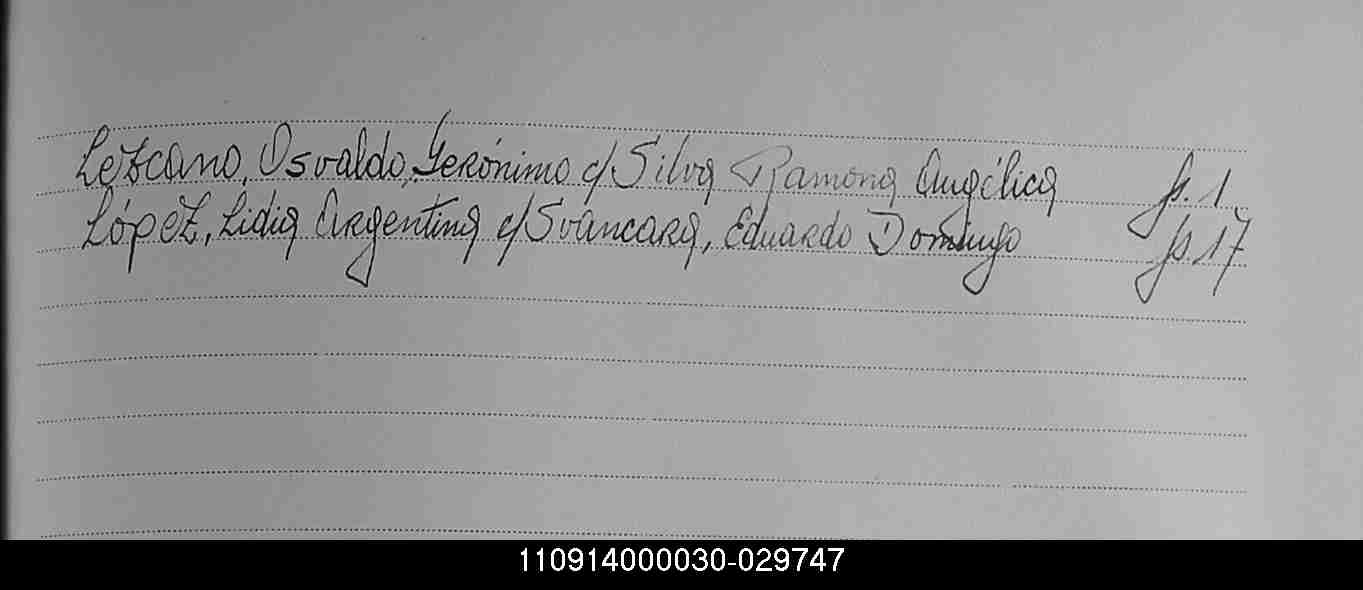 Lezcano, Osvaldo Gerónimo c/ Silva Ramona Angélica fs. 1
López, Lidia Argentina c/ Svancara, Eduardo Domingo fs. 17
110914000030-029747